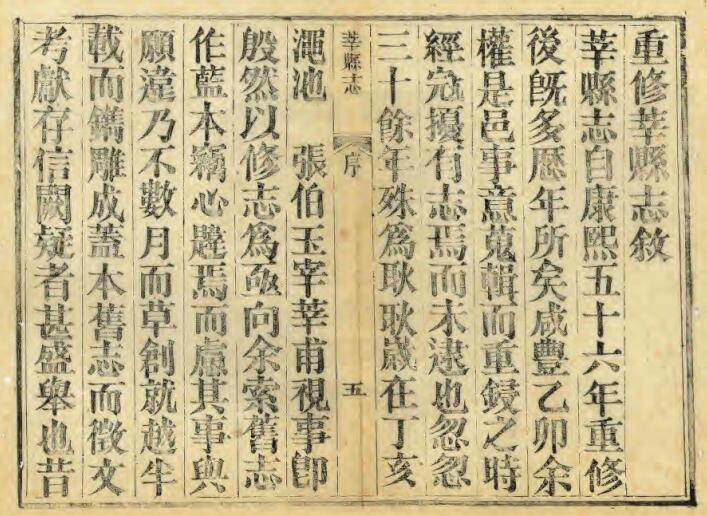 重修莘縣志敘
莘縣志自康熙五十六年重修
後既多歷年所矣咸豐乙卯余
權是邑事意蒐輯而重鋟之時
經寇擾有志焉而未逮也忽忽
三十餘年殊為耿耿歲在丁亥
莘縣志 序 五
澠池 張伯玉宰莘甫視事卽
殷然以修志爲亟向余索舊志
作藍本竊心韙焉而慮其事與
願違乃不數月而草創就越半
載而鐫雕成蓋本舊志而徵文
考獻存信闕疑者甚盛舉也昔